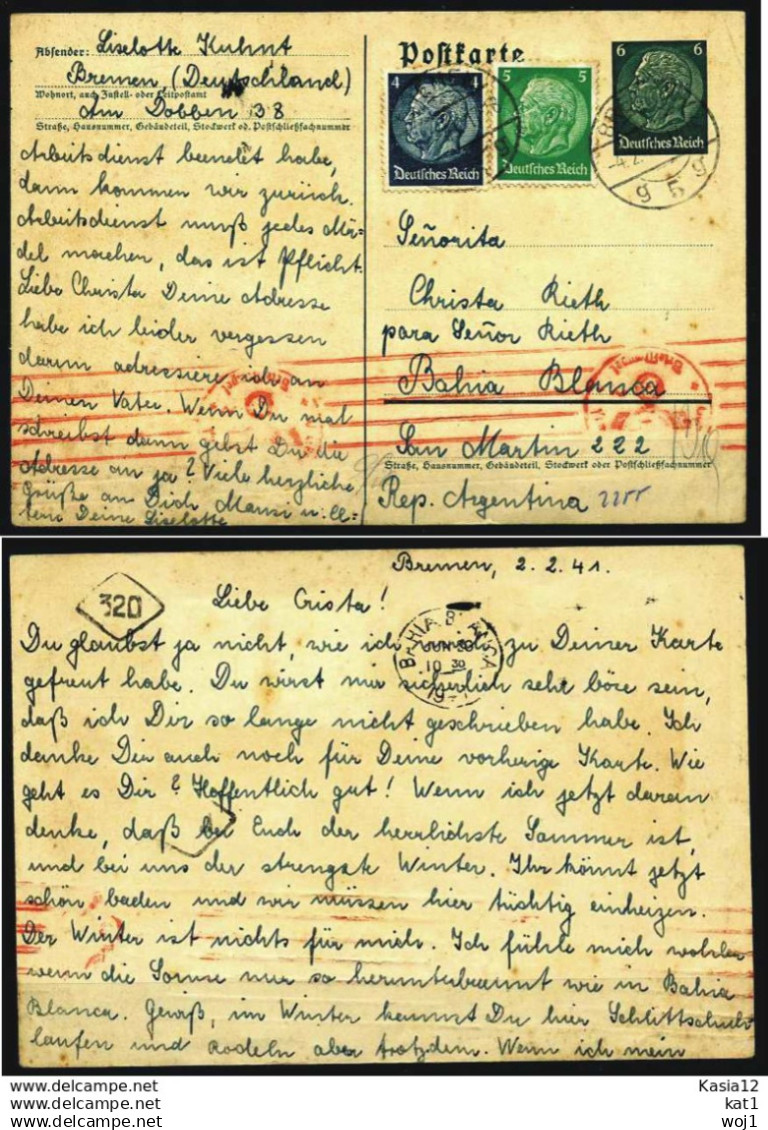 Absender: Liselotte Kuhnt
Bremen, (Deutschland)
Wohnort, auch Zustell- oder Leitpostamt
Am Dobben 38
Straße, Hausnummer, Gebäudeteil, Stockwerk od. Postschließfachnummer
Arbeitsdienst beendet habe,
dann kommen wir zurück.
Arbeitsdienst muß jedes Mä-
del machen, das ist Pflicht.
Liebe Christa Deine Adresse
habe ich leider vergessen
darum adressiere ich an
Deinen Vater. Wenn Du mal
schreibst dann gebst Du die
Adresse an ja? Viele herzliche
Grüße an Dich, Mausi u. El-
tern Deine Liselotte
Postkarte
4
Deutsches Reich
5 5
Deutsches Reich
6 6
Deutsches Reich
g 5 g
Señorita
Christa Rieth
para Señor Rieth
Bahia Blanca
San Martin 222
Straße, Hausnummer, Gebäudeteil, Stockwerk oder Postschließfachnummer
Rep. Argentina
Bremen, 2.2.41.
320
Liebe Crista!
BAHIA BLANCA
JUN 30
10 30
Du glaubst ja nicht, wie ich mich zu Deiner Karte
gefreut habe. Du wirst mir sicherlich sehr böse sein,
daß ich Dir so lange nicht geschrieben habe. Ich
danke Dir auch noch für Deine vorherige Karte. Wie
geht es Dir? Hoffentlich gut! Wenn ich jetzt daran
denke, daß bei Euch der herrlichste Sommer ist,
und bei uns der strengste Winter. Ihr könnt jetzt
schön baden und wir müssen hier tüchtig einheizen.
Der Winter ist nichts für mich. Ich fühle mich wohler
wenn die Sonne nur so herunterbrennt wie in Bahia
Blanca. Gewiß, im Winter kannst Du hier Schlittschuh
laufen und rodeln aber trotzdem. Wenn ich mein
Kasia12
kat1
woj1